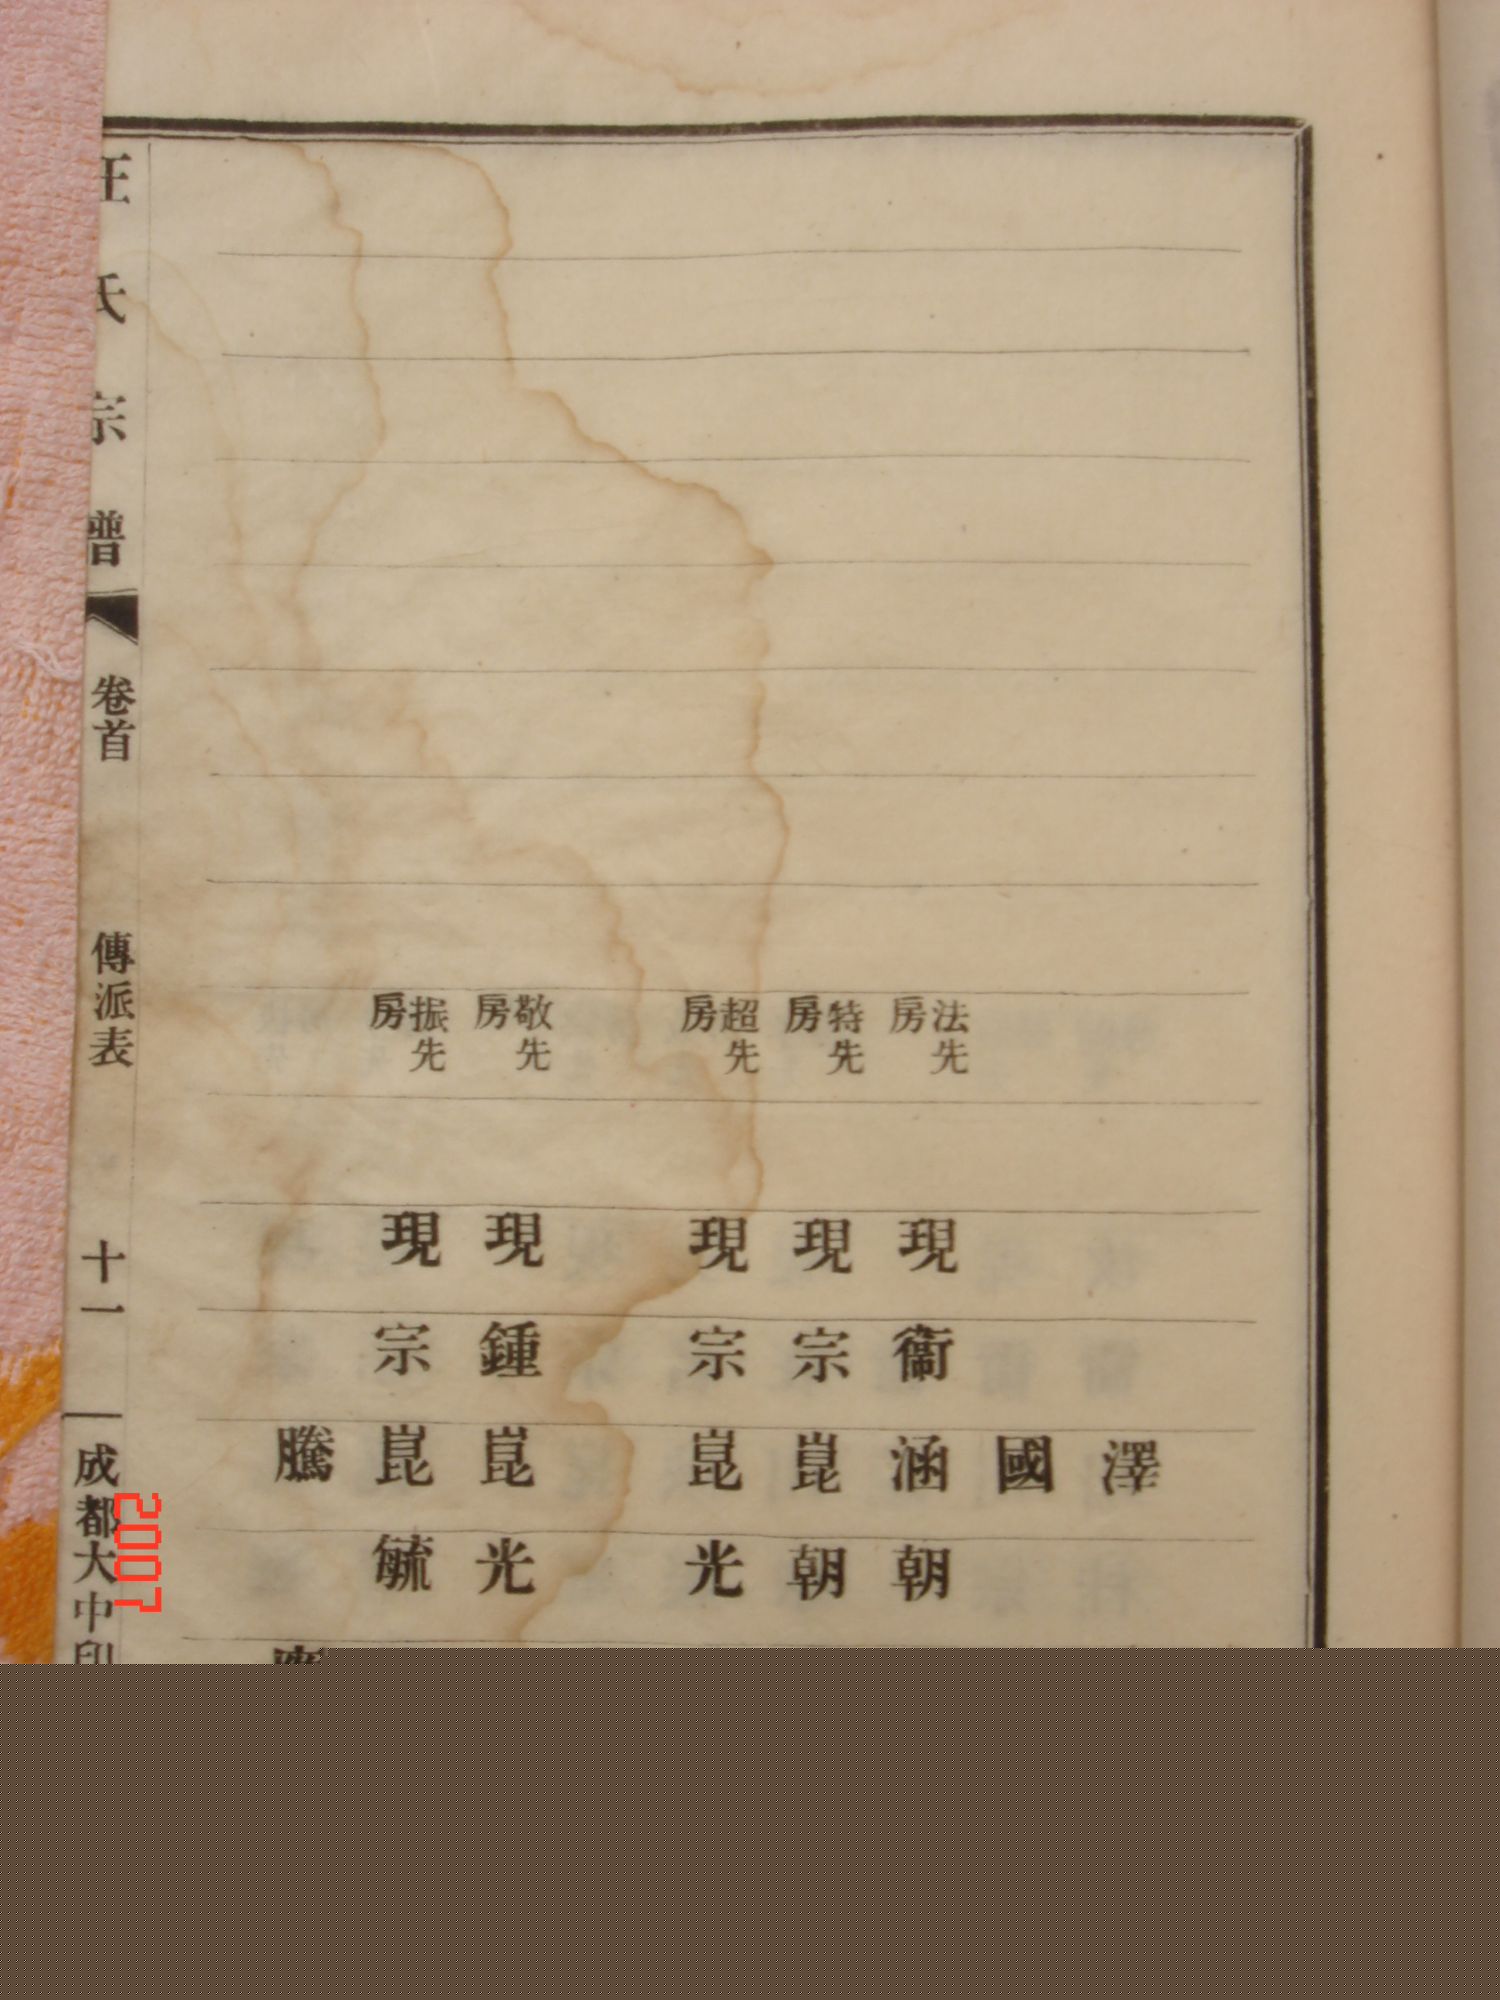 澤
國
法先房 現 衞 涵 朝
特先房 現 宗 崑 朝
超先房 現 宗 崑 光
敬先房 現 鍾 崑 光
振先房 現 宗 崑 毓
騰
汪氏宗譜 卷首 傳派表 十一 成都大中印
2007